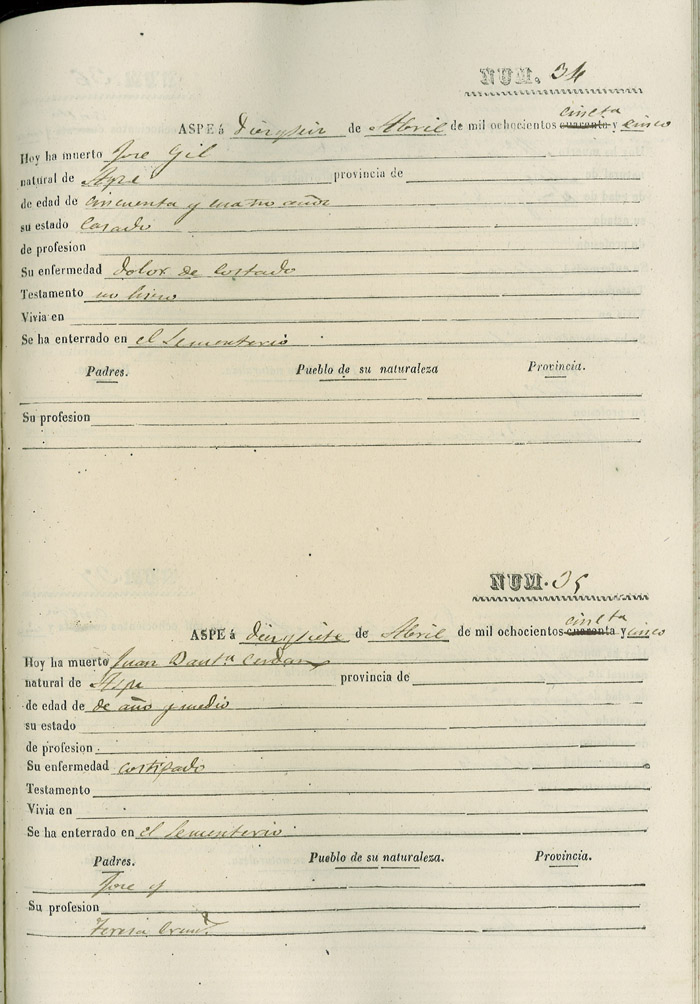 NUM. 34
ASPE á Diezyseis de Abril de mil ochocientos cuarenta cincta y cinco
Hoy ha muerto Jose Gil
natural de Aspe provincia de
de edad de cincuenta y cuatro años
su estado Casado
de profesion
Su enfermedad dolor de Costado
Testamento no hiso
Vivia en
Se ha enterrado en el Sementerio
Padres. Pueblo de su naturaleza Provincia.
Su profesion
NUM. 35
ASPE á diezysiete de Abril de mil ochocientos cuarenta cincta y cinco
Hoy ha muerto Juan Baut.ª Cerdan
natural de Aspe provincia de
de edad de de año y medio
su estado
de profesion
Su enfermedad costipado
Testamento
Vivia en
Se ha enterrado en el Sementerio
Padres. Pueblo de su naturaleza. Provincia.
Jose y
Su profesion
Teresa